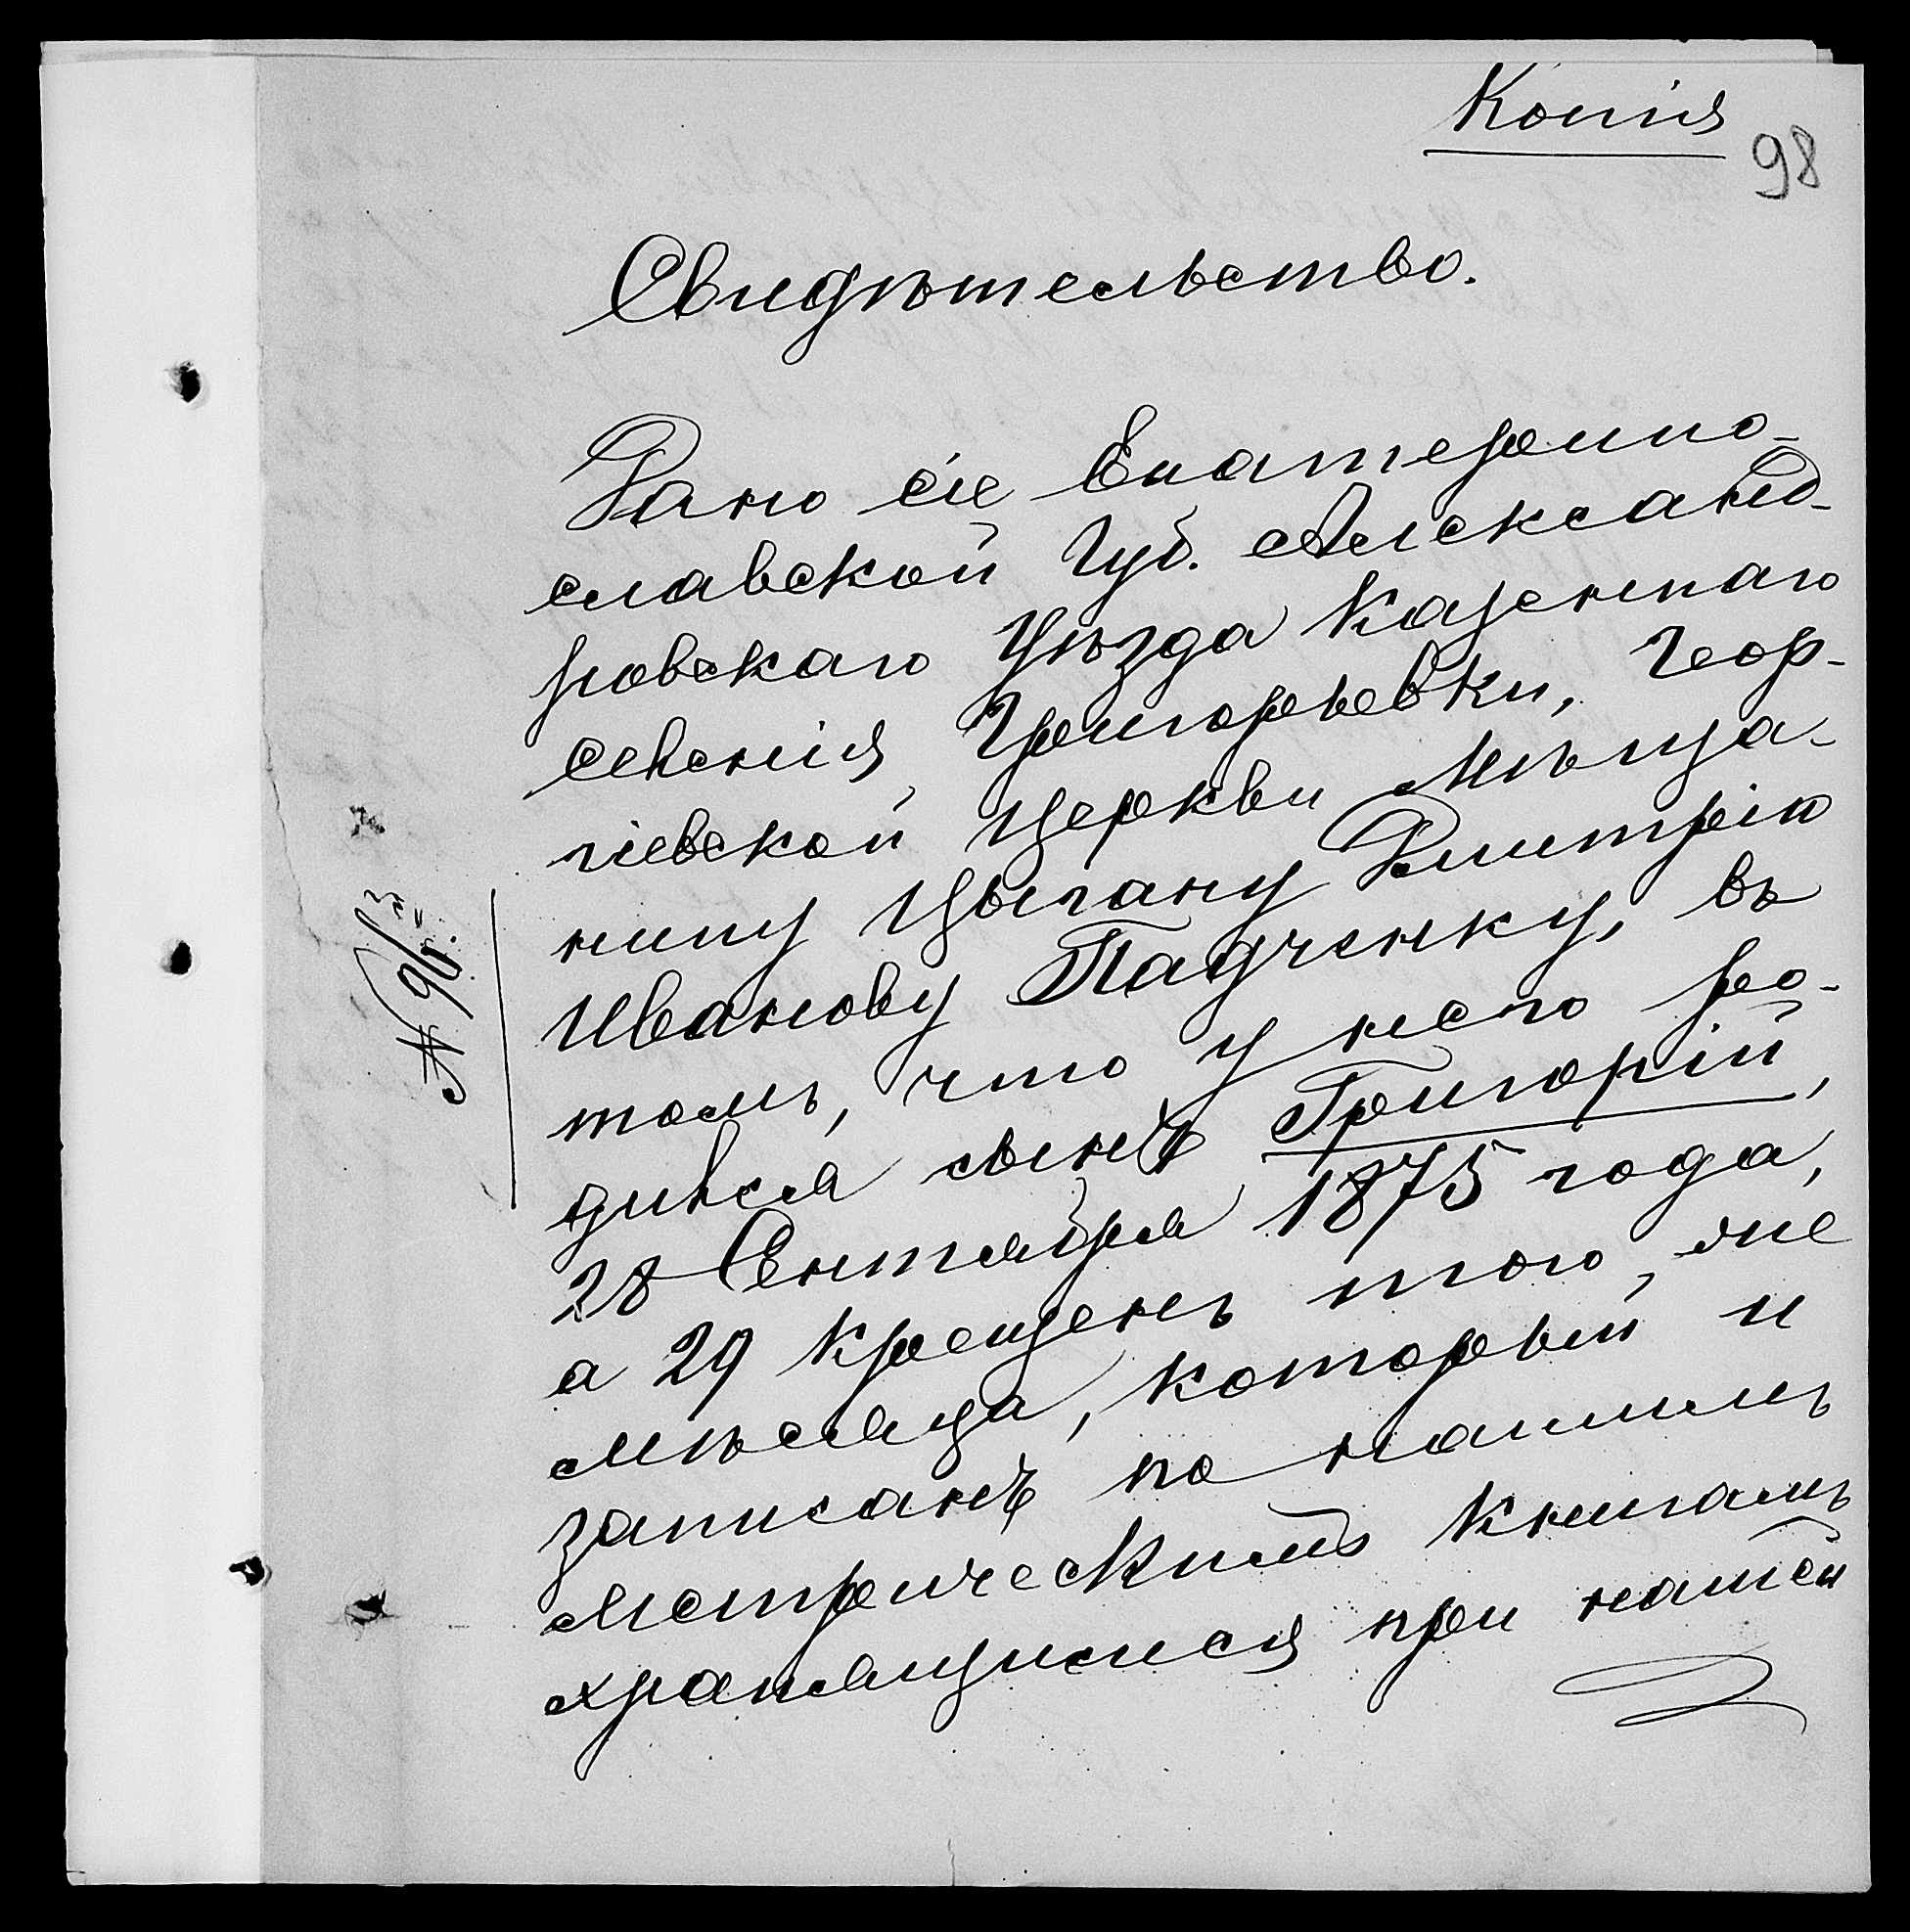 Копія
98
Свидѣтельство.
Дано сіе Екатерино-
славской Губ. Александ-
ровскаго Уѣзда Казеннаго
селенія Григорьевки, Геор-
гіевской Церкви Мѣща-
нину Цыгану Дмитрію
Иванову Падченку, въ
томъ, что у него ро-
дился сынъ Григорій,
28 Сентября 1875 года,
а 29 крещенъ того, же
мѣсяца, который и
записанъ по нашимъ
метрическимъ книгамъ
хранящимся при нашей
№ 96/3